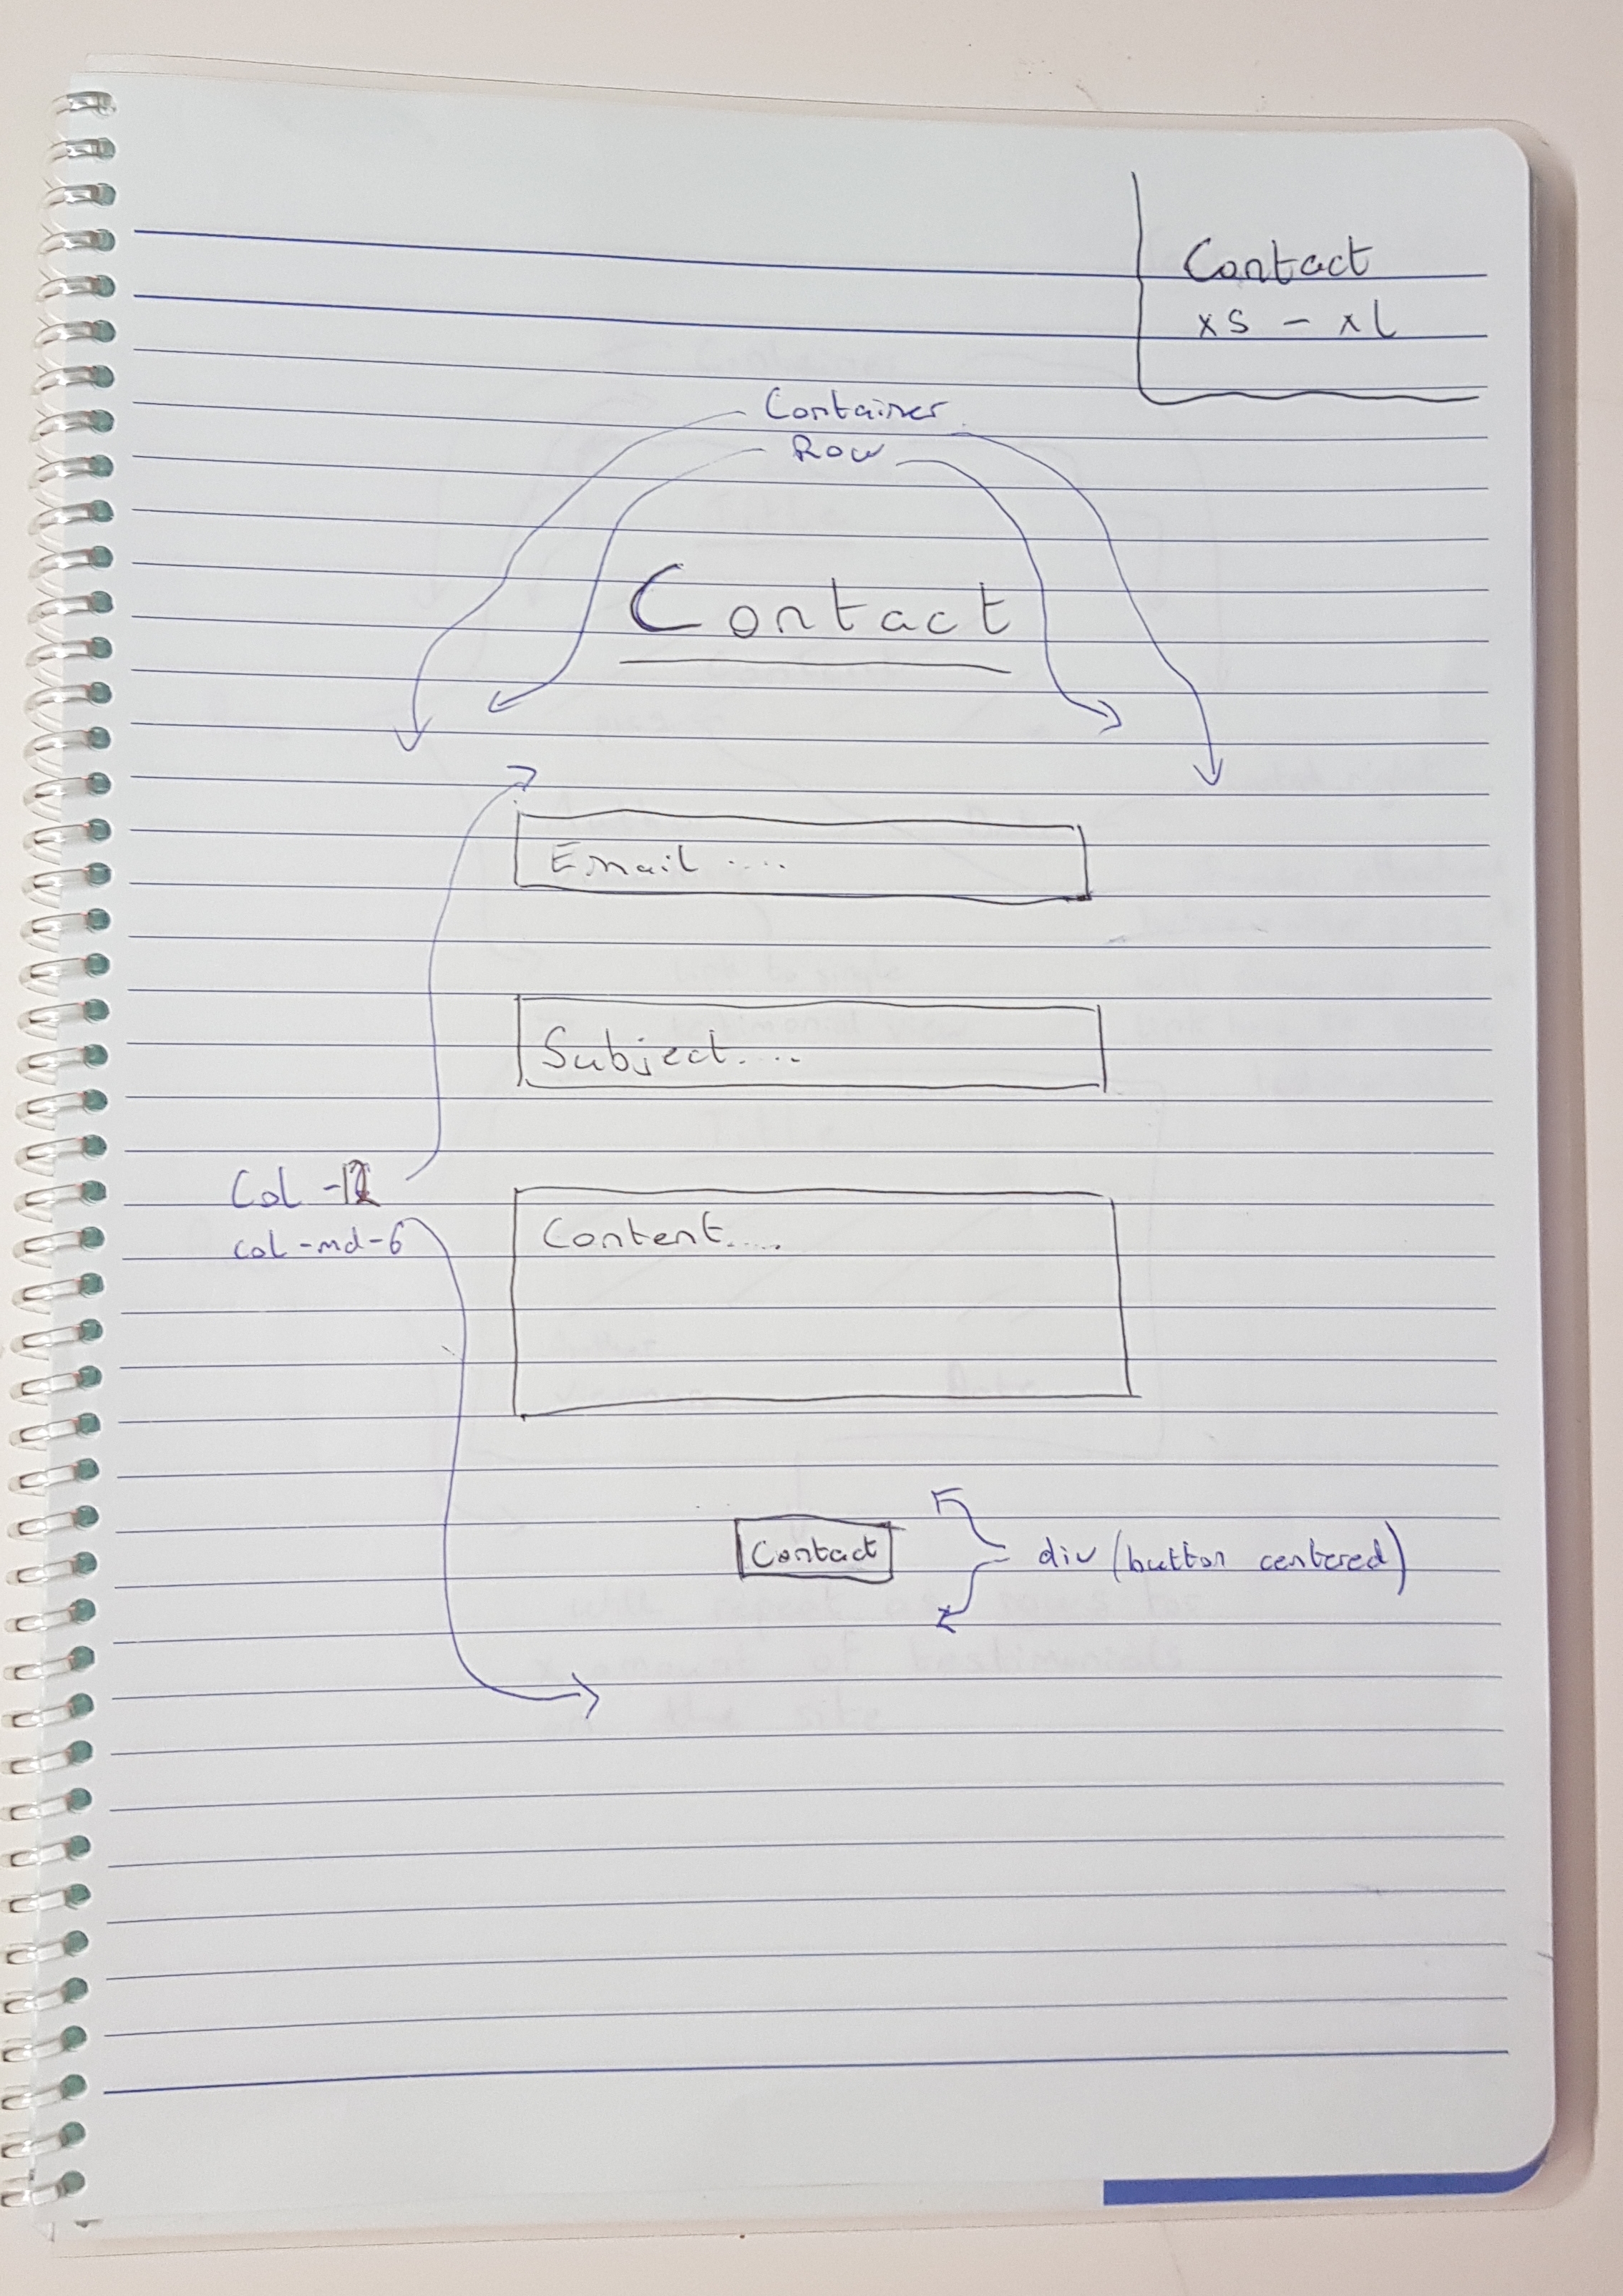 Contact
xs - xl
Container
Row
Contact
Email ....
Subject....
Col -12
col-md-6
Content.....
Contact
div (button centered)